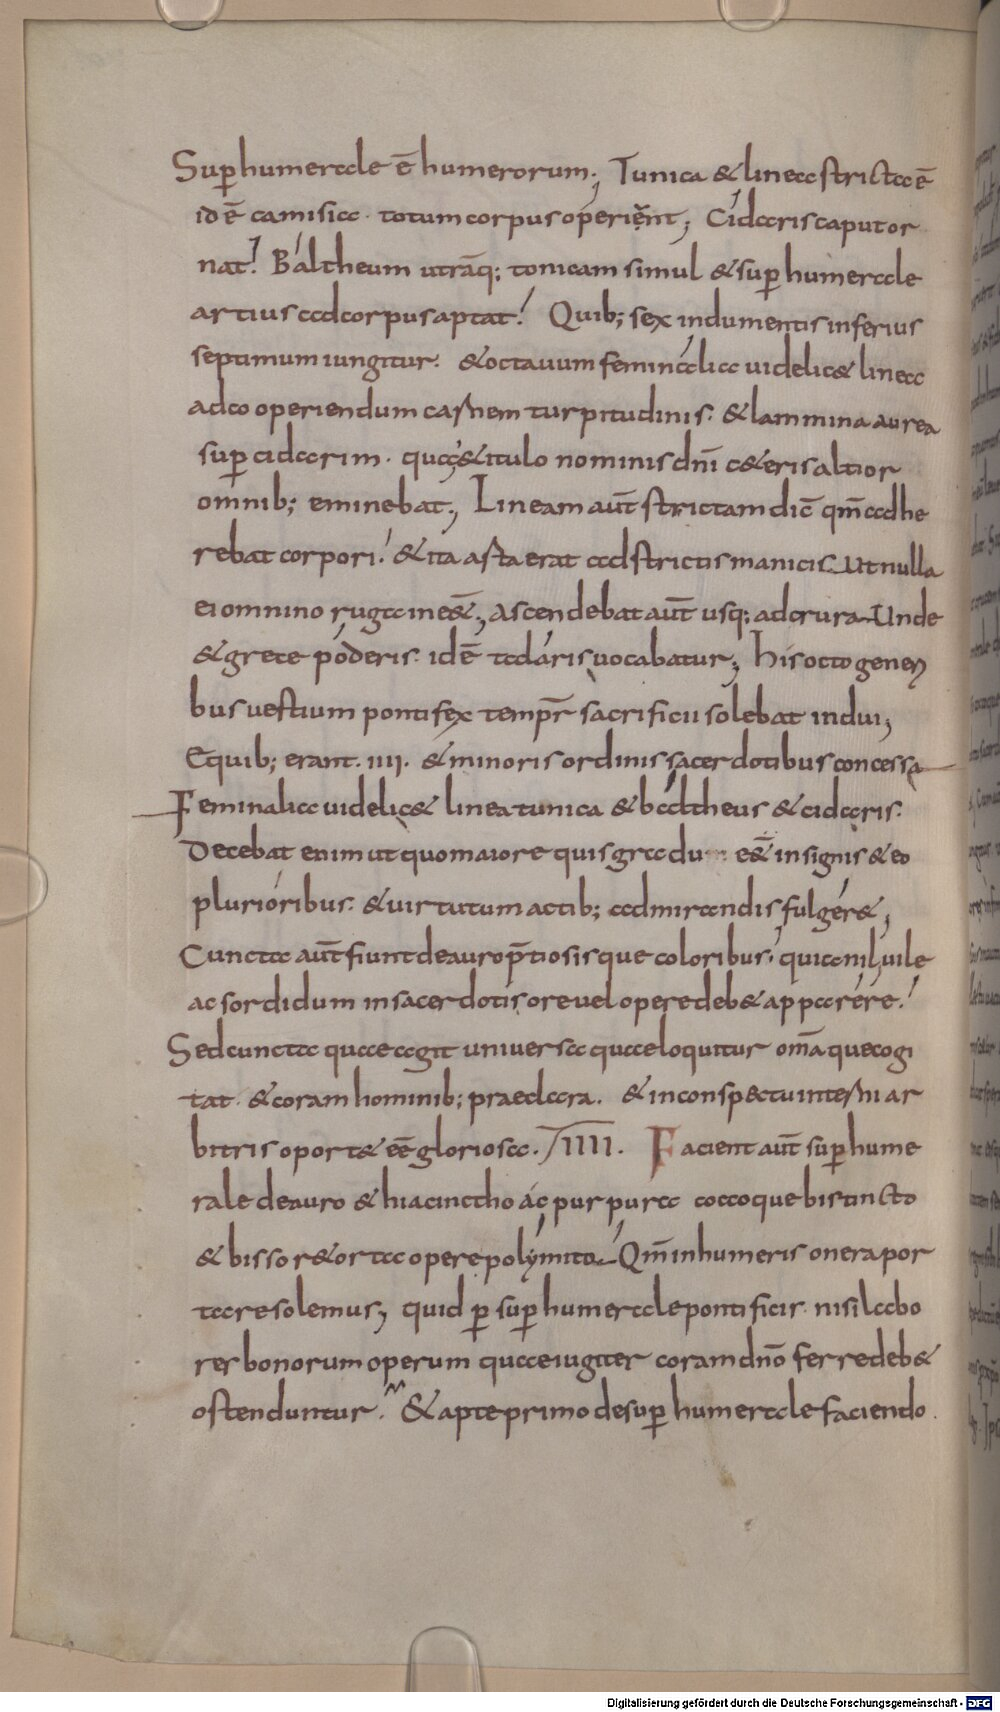 Sup̄humerale ē humerorum; Tunica & linea stricta ē
id ē camisia· totum corpus operient; Cidaris caput or
nat! Baltheum utrāq; tonicam simul & sup̄humerale
artius ad corpus aptat! Quib; sex indumentis inferius
septimum iungitur. & octauum feminalia uidelic& linea
ad cooperiendum carnem turpitudinis. & lammina aurea
sup̄ cidarim· quę & titulo nominis dn̄i c&eris altior
omnib; eminebat; Lineam aut̄ strictam dic̄ qm̄ adhe
rebat corpori! & ita asta erat ad strictis manicis Ut nulla
ei omnino ruga inee&̄; Ascendebat aut̄ usq; ad crura Unde
& grece póderis· id ē talaris uocabatur; His octo generi
bus uestium pontifex tempr̄ sacrificii solebat indui;
E quib; erant· iiii· & minoris ordinis sacerdotibus concessa
Feminalia uidelic& linea tunica & baltheus & cidaris·
Decebat enim ut quo maiore quis gradu e&̄ insignis & eo
plurióribus· & uirtutum actib; admirandis fulgér&;
Cuncta aut̄ fiunt de auro p̄tiosisque coloribus! quia nihil uile
ac sordidum in sacerdotis ore uel opere deb& apparére!
Sed cuncta quae agit universa quae loquitur om̄a que cogi
tat· & coram hominib; praeclara· & in conspectu interni ar
bitris oport& eē gloriosa· IIII· Facient aut̄ sup̄hume
rale de auro & hiacinctho ác purpura coccoque bis tincto
& bisso r&orta opere polýmito Qm̄ in humeris onera por
tare solemus; quid p̄ sup̄humerale pontificis· nisi labo
res bonorum operum quae iugiter coram dn̄o ferre deb&
ostenduntur· & apte primo de sup̄humerale faciendo·
Digitalisierung gefördert durch die Deutsche Forschungsgemeinschaft - DFG